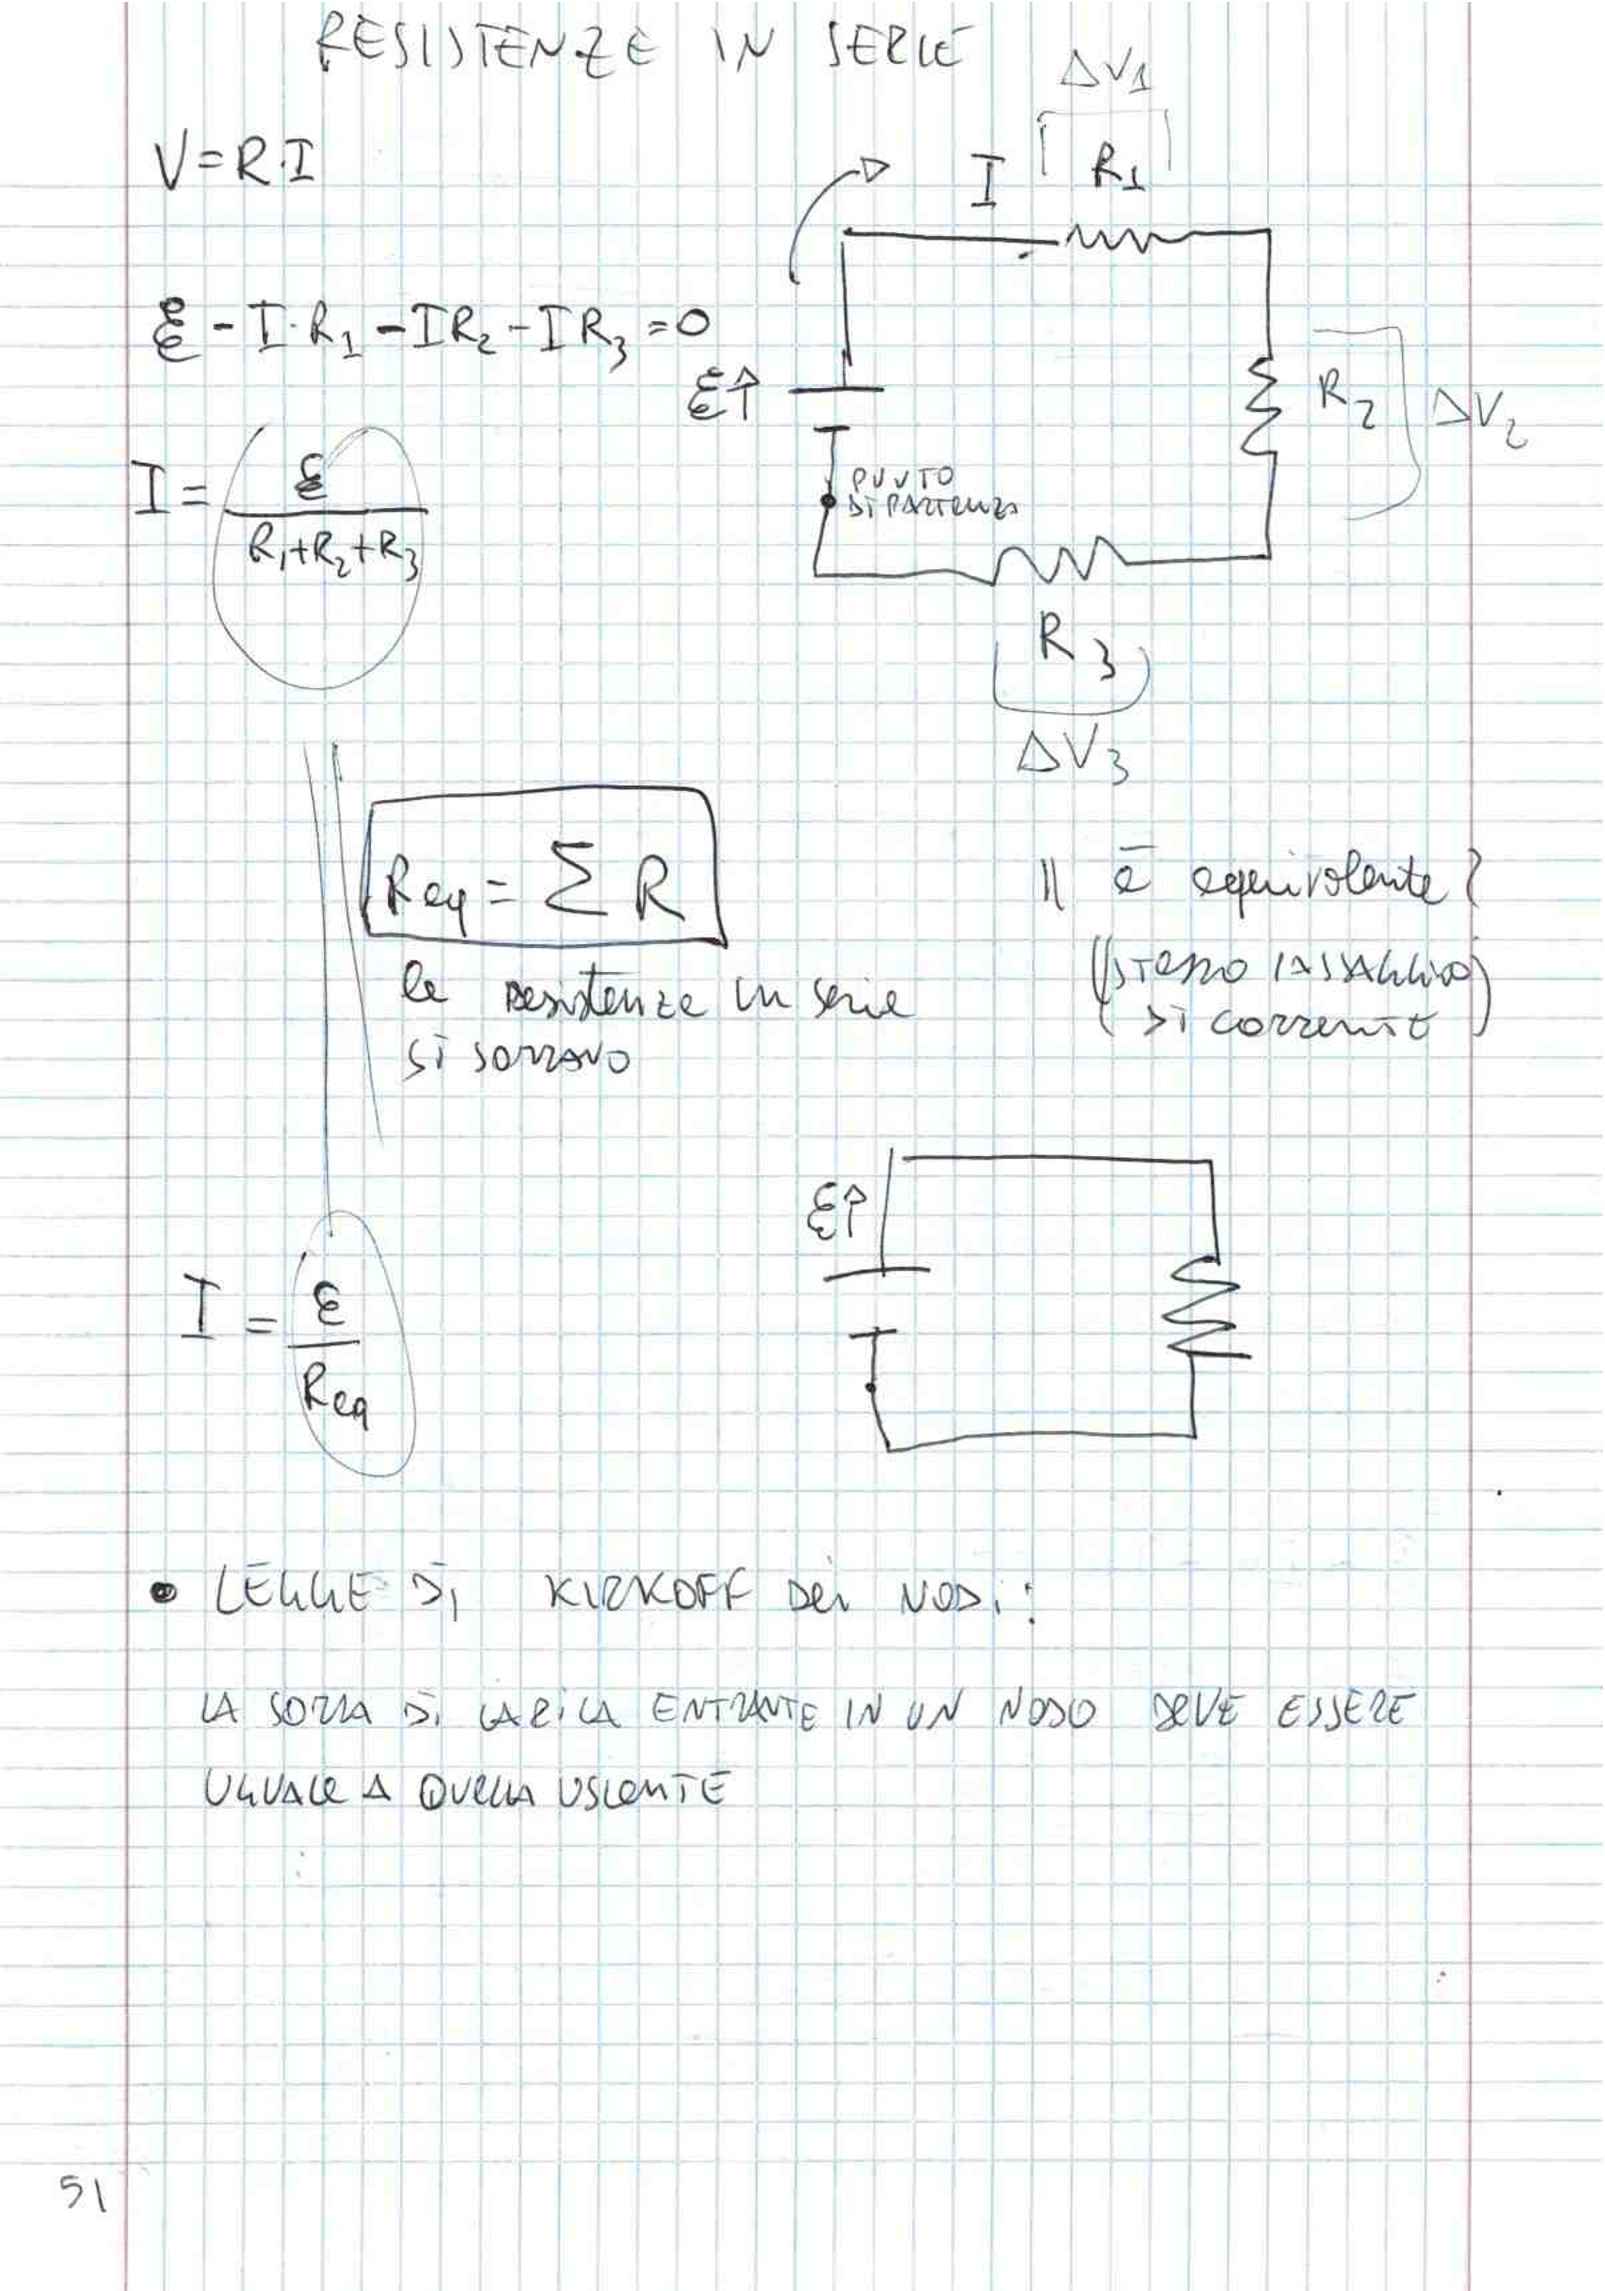 RESISTENZE IN SERIE
V=R·I
ΔV1
I R1
ℰ - I·R1 - IR2 - IR3 = 0
ℰ↑
R2 ΔV2
I = ℰ / (R1+R2+R3)
PUNTO
DI PARTENZA
R3
ΔV3
Req = Σ R
le resistenze in serie
si SOMMANO
|| è equivalente?
(STESSO PASSAGGIO
DI CORRENTE)
ℰ↑
I = ℰ / Req
• LEGGE DI KIRKOFF Dei NODi:
LA SOMMA Di CARICA ENTRANTE IN UN NODO DEVE ESSERE
UGUALE A QUELLA USCENTE
51